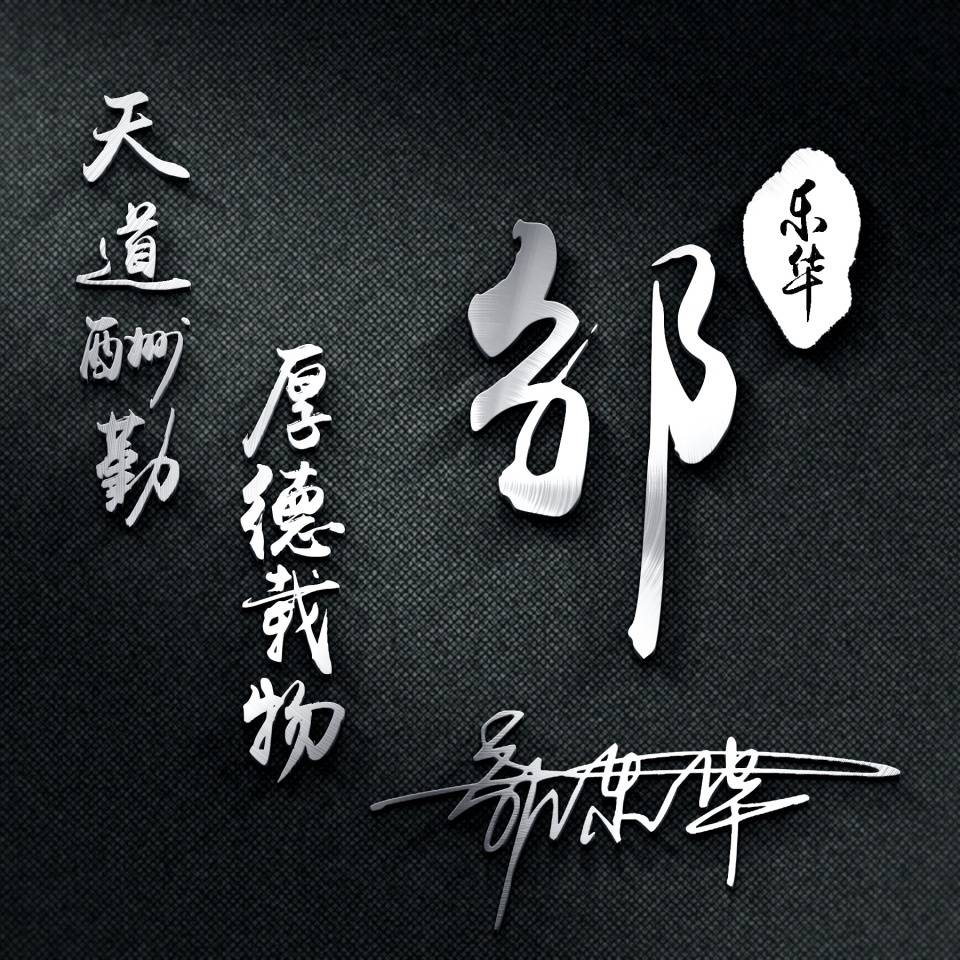 天道酬勤
厚德载物
乐华
乐华